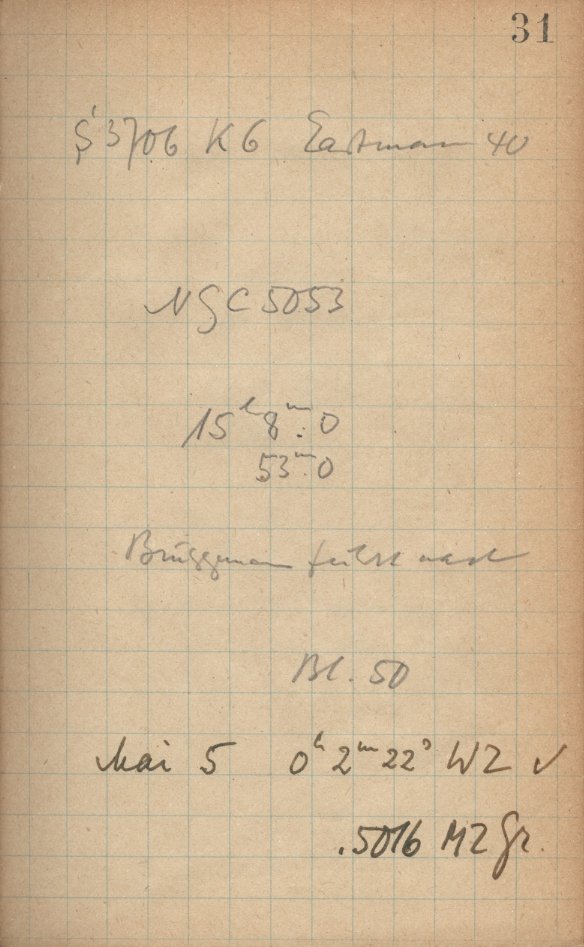 31
S 3706 K6 Eastman 40
NGC 5053
15ʰ 8ᵐ.0
53ᵐ.0
Brüggemann führt nach
Bl. 50
Mai 5 0ʰ 2ᵐ 22ˢ WZ ✓
.5016 MZ Gr.